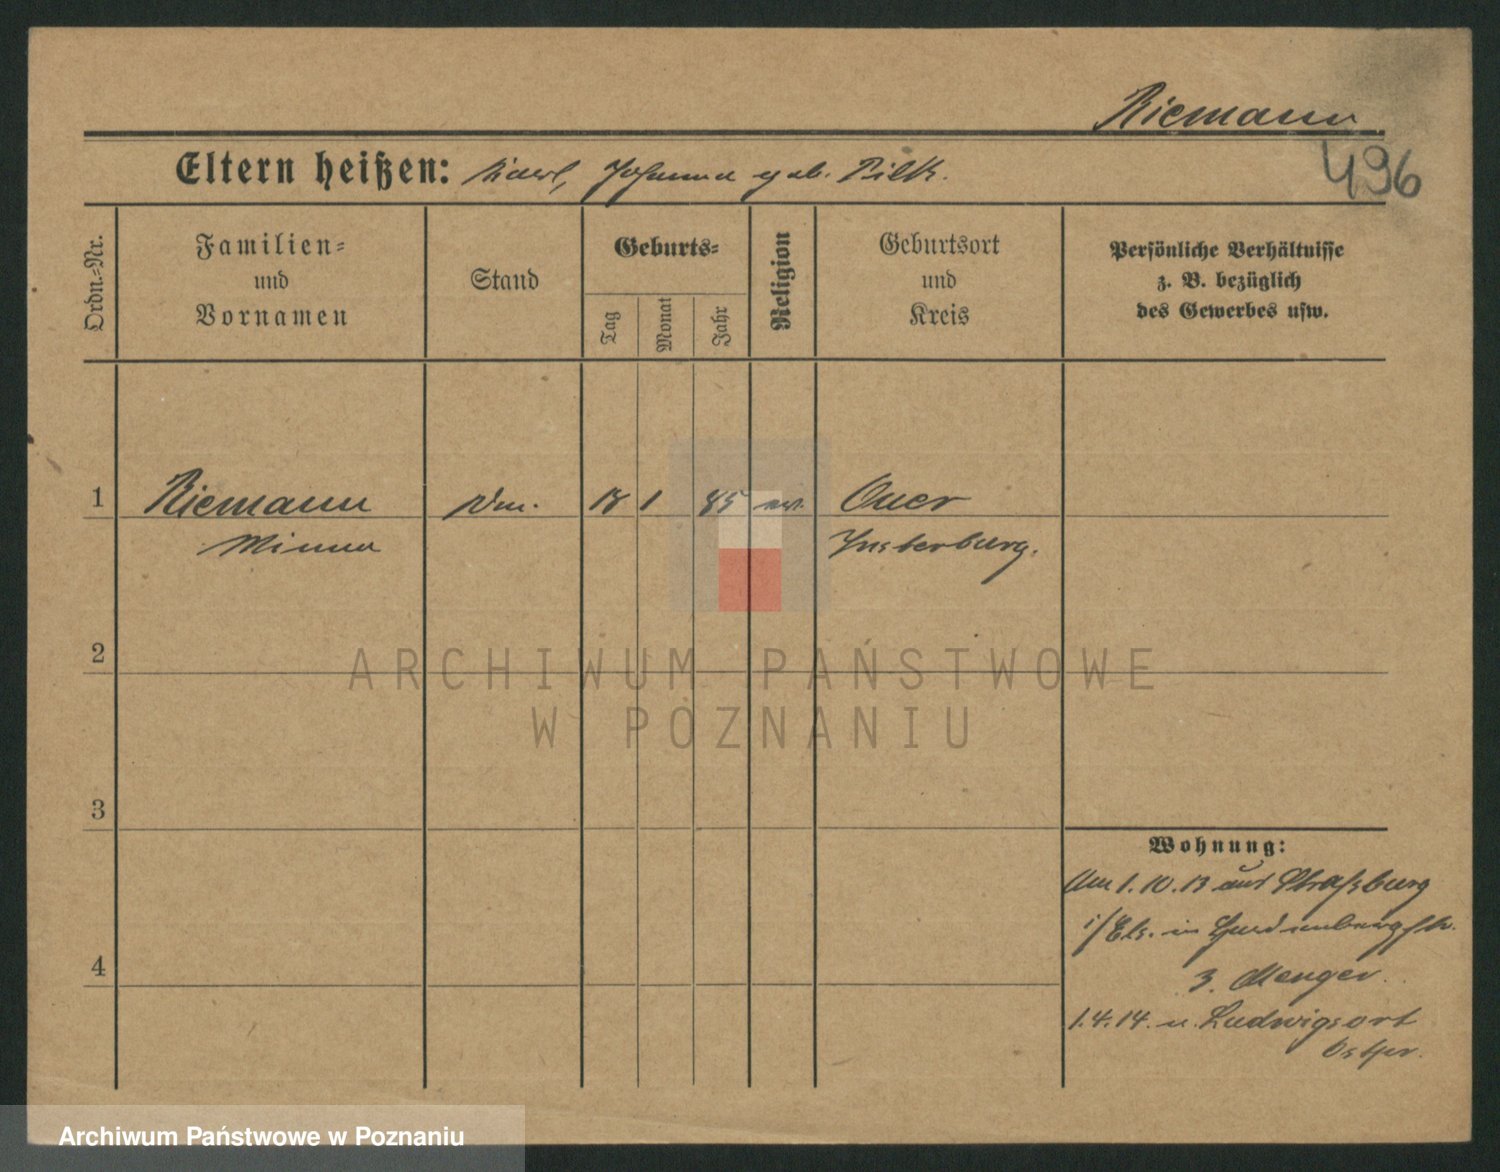 Riemann
496
Eltern heißen: Karl, Johanna geb. Pilk.
Ordn.-Nr.
Familien-
und
Vornamen
Stand
Geburts-
Tag
Monat
Jahr
Religion
Geburtsort
und
Kreis
Persönliche Verhältnisse
z. B. bezüglich
des Gewerbes usw.
1 Riemann 18 1 85 ev.
Minna Insterburg.
2
ARCHIWUM PAŃSTWOWE
W POZNANIU
3
Wohnung:
Am 1.10.13 aus Straßburg
i/Els. in
4
3. Menger.
1.4.14. n. Ludwigsort
Ostpr.
Archiwum Państwowe w Poznaniu